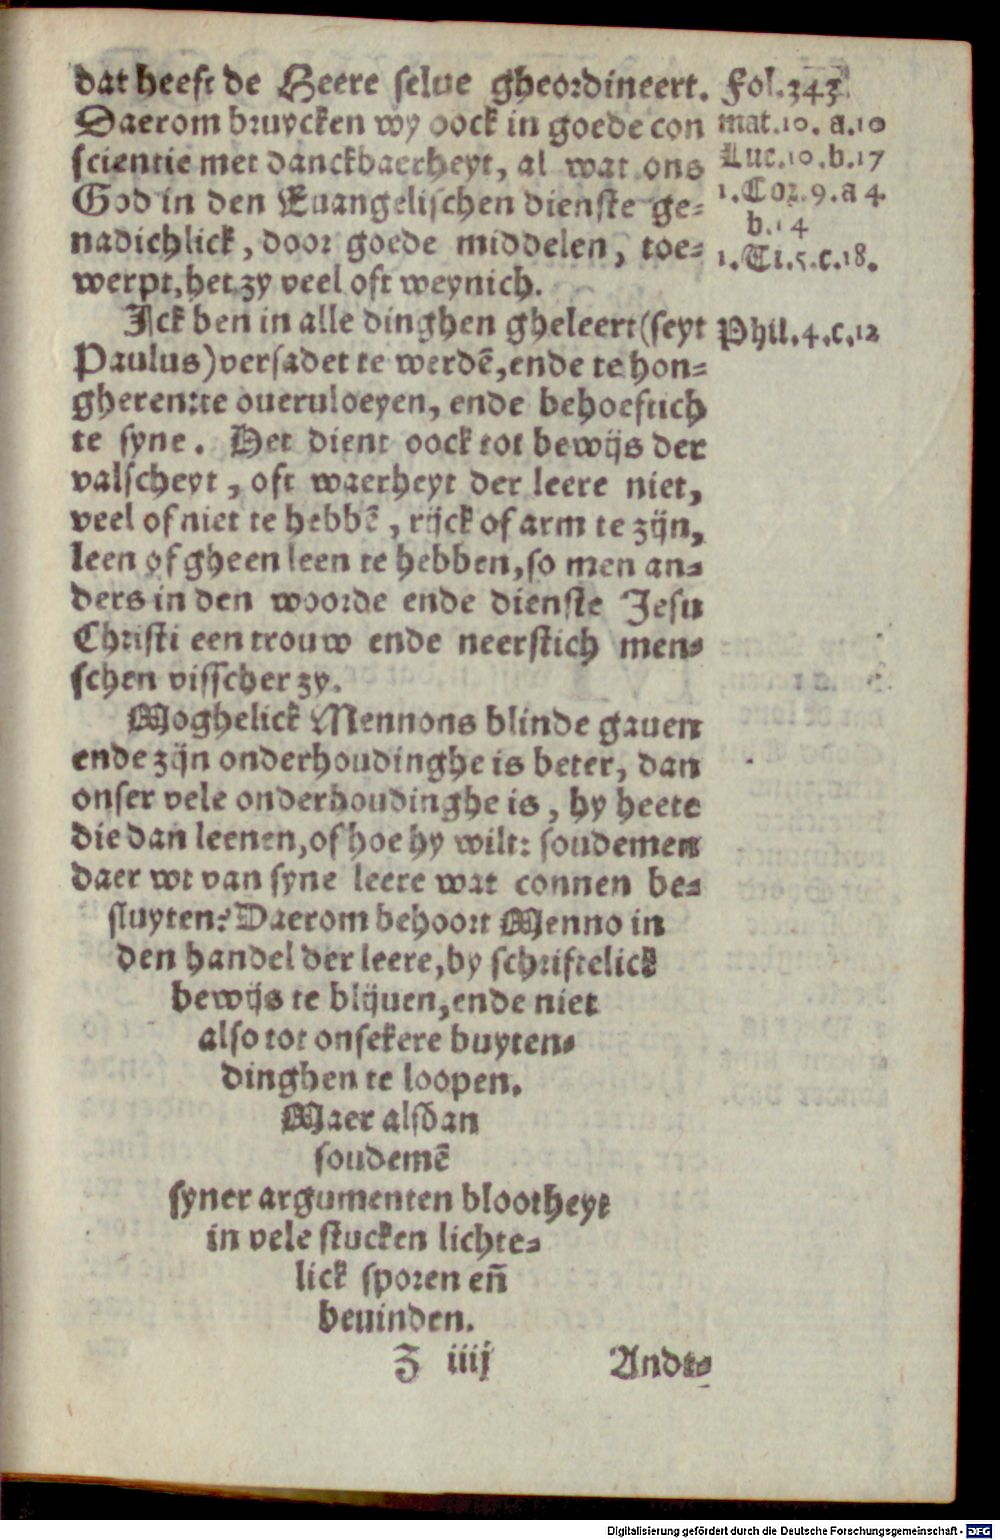 dat heeft de Heere selue gheordineert.
Fol.343.
Daerom bruycken wy oock in goede con
mat.10. a.10
scientie met danckbaerheyt, al wat ons
Luc.10.b.17
God in den Euangelischen dienste ge-
1.Cor.9.a 4.
b.14
nadichlick, door goede middelen, toe-
1.Ti.5.c.18.
werpt, het zy veel oft weynich.
Ick ben in alle dinghen gheleert (seyt
Phil.4.c.12
Paulus) versadet te werdē, ende te hon-
gheren: te oueruloeyen, ende behoeftich
te syne. Het dient oock tot bewijs der
valscheyt, oft waerheyt der leere niet,
veel of niet te hebbē, rijck of arm te zijn,
leen of gheen leen te hebben, so men an-
ders in den woorde ende dienste Jesu
Christi een trouw ende neerstich men-
schen visscher zy.
Moghelick Mennons blinde gauen
ende zijn onderhoudinghe is beter, dan
onser vele onderhoudinghe is, hy heete
die dan leenen, of hoe hy wilt: soudemen
daer wt van syne leere wat connen be-
sluyten? Daerom behoort Menno in
den handel der leere, by schriftelick
bewijs te blijuen, ende niet
also tot onsekere buyten-
dinghen te loopen.
Maer alsdan
soudemē
syner argumenten blootheyt
in vele stucken lichte-
lick sporen eñ
beuinden.
Z iiij
Ande-
Digitalisierung gefördert durch die Deutsche Forschungsgemeinschaft - DFG